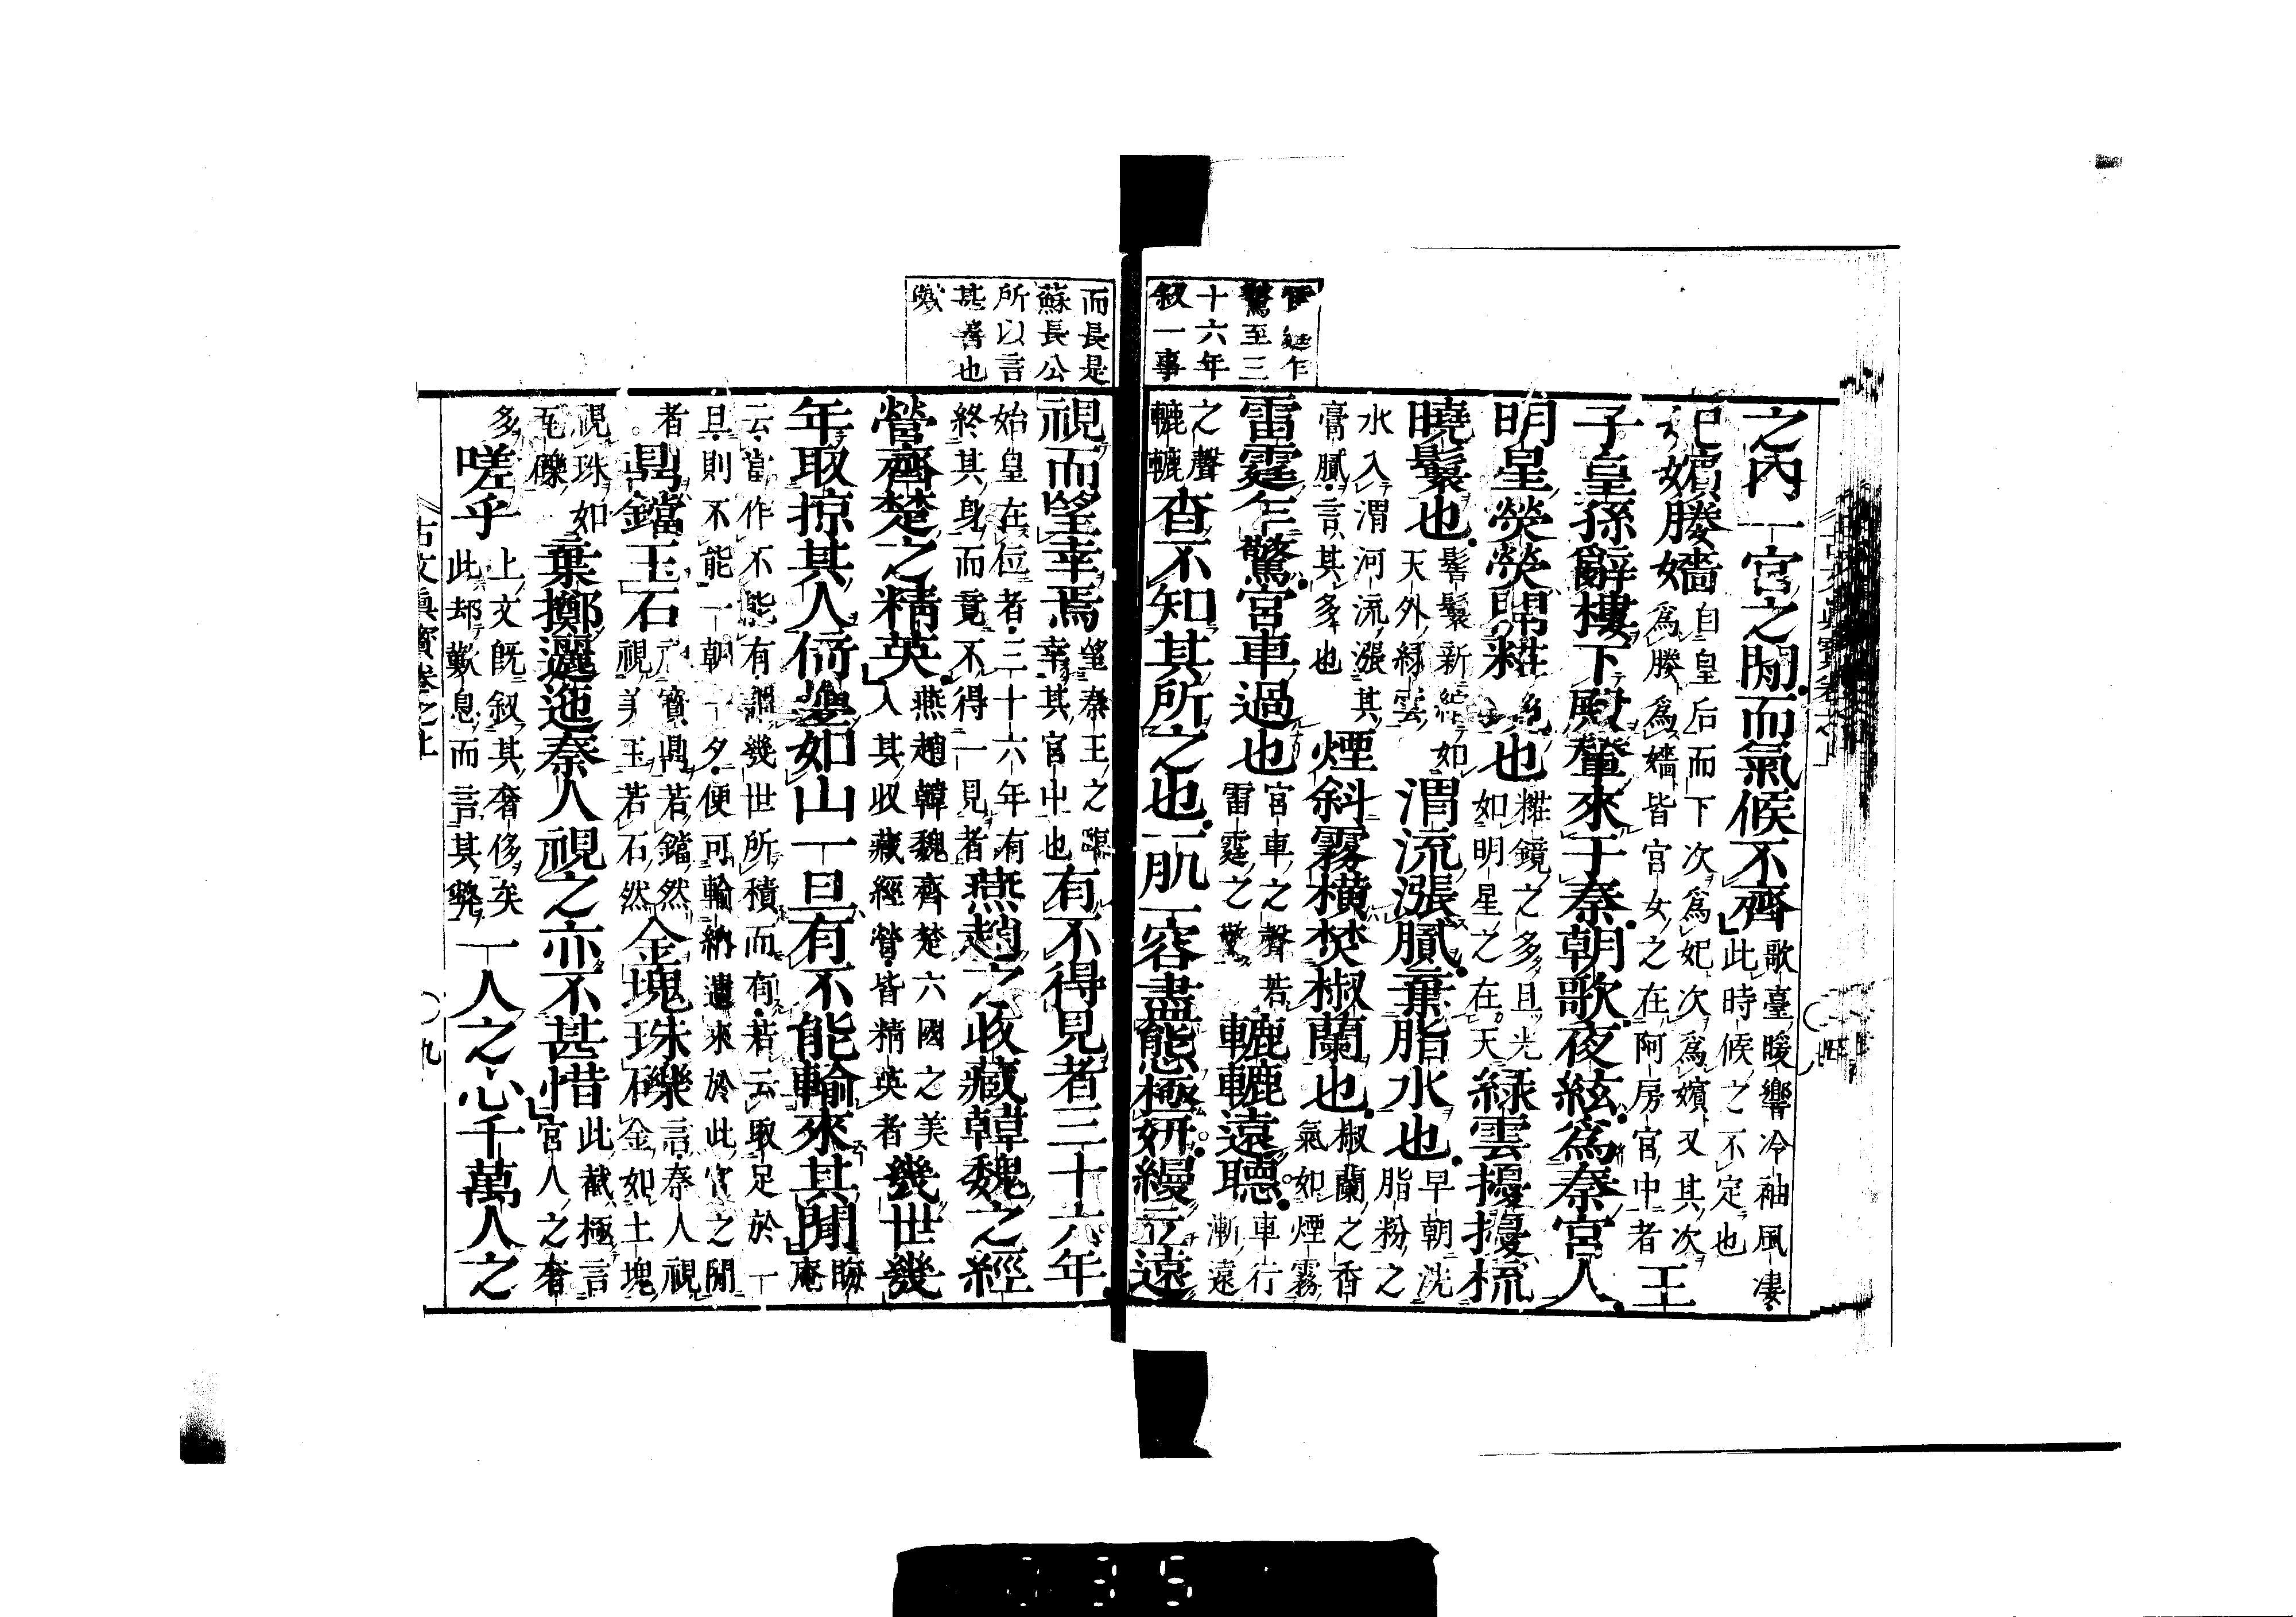 之內一宮之閒而氣候不齊歌臺暖響冷袖風凄此時候之不定也
妃嬪媵嬙自皇后而下次爲妃次爲嬪又其次爲媵爲嬙皆宮女之在阿房宮中者王
子皇孫辭樓下殿輦來于秦朝歌夜絃爲秦宮人
明星熒熒開粧鏡也粧鏡之多且光如明星之在天綠雲擾擾梳
曉鬟也髻鬟新綰如天外綠雲渭流漲膩棄脂水也早朝洗脂粉之
水入渭河流漲其膏膩言其多也煙斜霧橫焚椒蘭也椒蘭之香氣如煙霧
雷霆乍驚宮車過也宮車之聲若雷霆之驚轆轆遠聽車行漸遠
之聲轆轆杳不知其所之也一肌一容盡態極姸縵立遠
雷霆乍
驚至三
十六年
叙一事
視而望幸焉望秦王之臨幸其宮中也有不得見者三十六年
始皇在位者三十六年有終其身而竟不得一見者燕趙之收藏韓魏之經
營齊楚之精英燕趙韓魏齊楚六國之美人其收藏經營皆精英者幾世幾
年取掠其人倚疊如山一旦有不能輸來其閒晦庵
云當作不能有謂幾世所積而有若云取足於一旦則不能一朝一夕便可輸納遺來於此宮之閒
者鼎鐺玉石寶鼎若鐺然視美玉若石然金塊珠礫言秦人視金如土塊
視珠如瓦礫棄擲邐迤秦人視之亦不甚惜此截極言宮人之奢
多嗟乎上文旣叙其奢侈矣此却歎息而言其弊一人之心千萬人之
古文眞寶卷之上 九
而長是
蘇長公
所以言
甚善也
歟